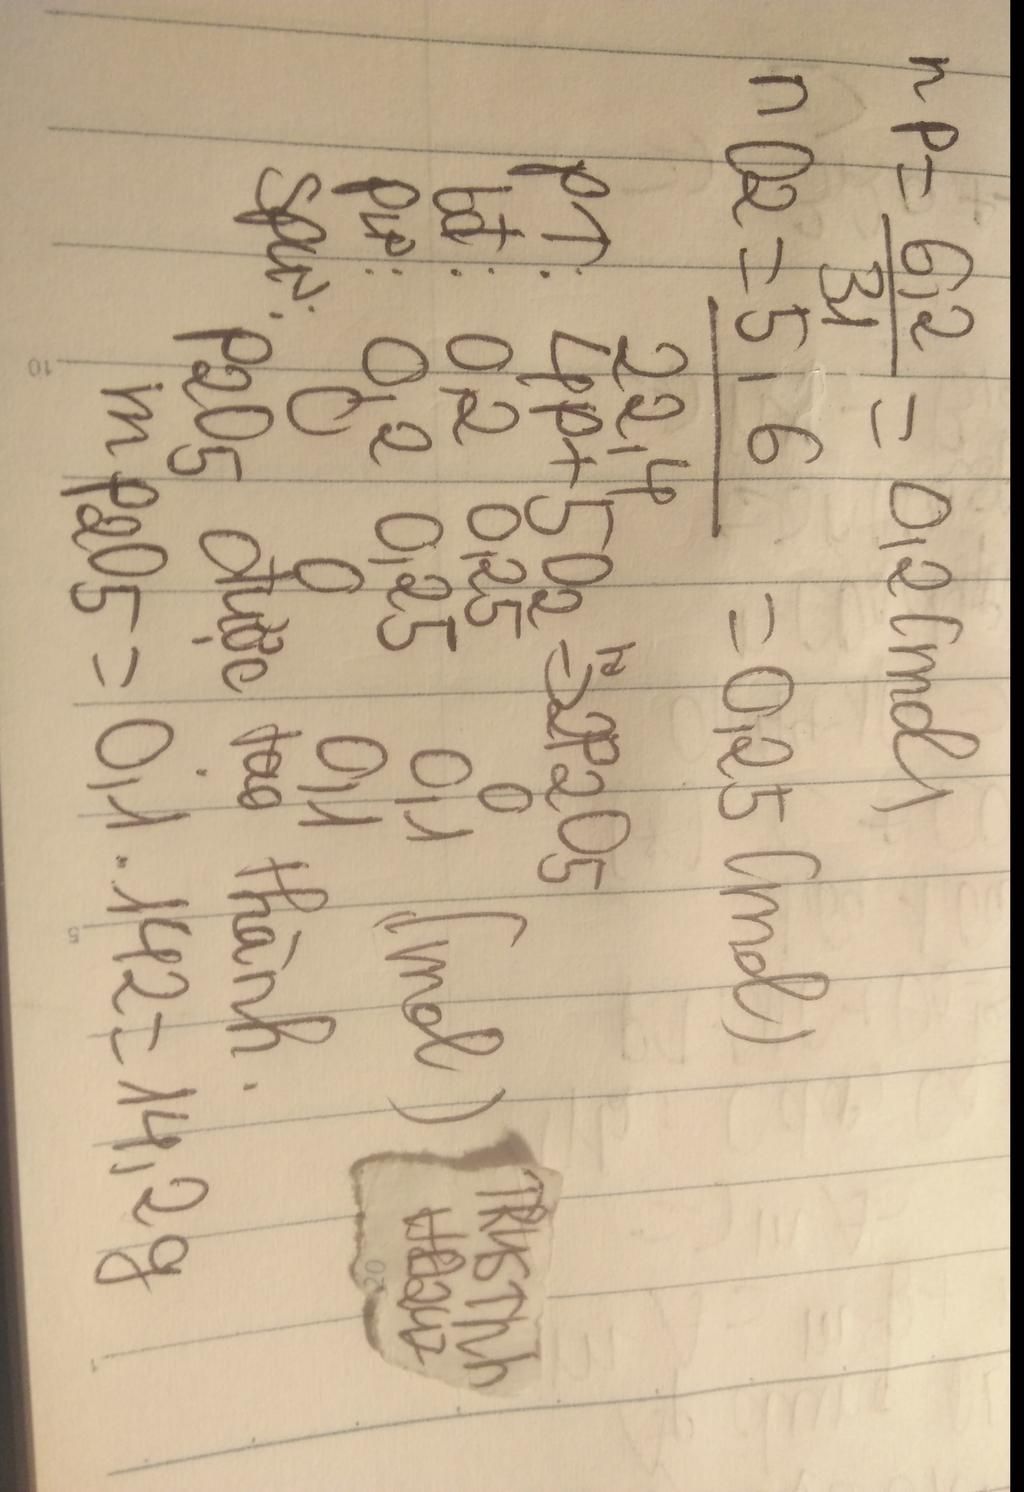 nP = 6,2 / 31 = 0,2 (mol)
nO2 = 5,6 / 22,4 = 0,25 (mol)
PT: 4P + 5O2 =t°> 2P2O5
bđ: 0,2 0,25 0
pư: 0,2 0,25 0,1 (mol)
Spư: 0 0 0,1
P2O5 được tạo thành.
mP2O5 = 0,1 . 142 = 14,2g
10
5
1
20